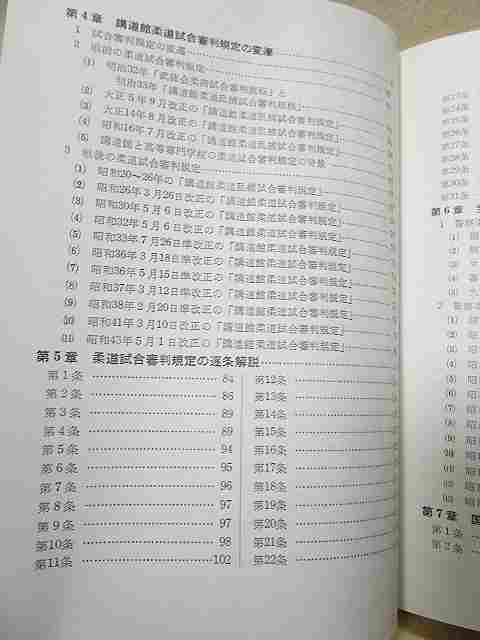 第4章 講道館柔道試合審判規定の変遷
1 試合審判規定の変遷
2 戦前の柔道試合審判規定
(1) 明治32年「武徳会柔術試合審判規程」と
明治33年「講道館柔道乱捕試合審判規程」
(2) 大正5年9月改正の「講道館柔道乱捕試合審判規程」
(3) 大正14年8月改正の「講道館柔道乱捕試合審判規程」
(4) 昭和16年7月改正の「講道館柔道乱捕試合審判規程」
(5) 講道館と高等専門学校の柔道試合審判規定の背景
3 戦後の柔道試合審判規定
(1) 昭和20〜26年の「講道館柔道乱捕試合審判規定」
(2) 昭和26年3月26日改正の「講道館柔道試合審判規定」
(3) 昭和30年5月6日改正の「講道館柔道試合審判規定」
(4) 昭和32年5月6日改正の「講道館柔道試合審判規定」
(5) 昭和33年7月26日準改正の「講道館柔道試合審判規定」
(6) 昭和36年3月18日準改正の「講道館柔道試合審判規定」
(7) 昭和36年5月15日準改正の「講道館柔道試合審判規定」
(8) 昭和37年3月12日準改正の「講道館柔道試合審判規定」
(9) 昭和38年2月20日準改正の「講道館柔道試合審判規定」
(10) 昭和41年3月10日改正の「講道館柔道試合審判規定」
(11) 昭和43年5月1日改正の「講道館柔道試合審判規定」
第5章 柔道試合審判規定の逐条解説
第1条 84
第2条 86
第3条 89
第4条 89
第5条 94
第6条 95
第7条 96
第8条 97
第9条 97
第10条 98
第11条 102
第12条
第13条
第14条
第15条
第16条
第17条
第18条
第19条
第20条
第21条
第22条
第23条
第24条
第25条
第26条
第27条
第28条
第29条
第30条
第31条
第6章
1
(1)
(2)
(3)
(4)
(5)
2
(1) 昭
(2) 昭
(3) 昭
(4) 昭
(5) 昭
(6) 昭
(7) 昭
(8) 昭
(9) 昭
(10) 昭
(11) 昭
(12) 昭
(13) 昭
第7章 国
第1条
第2条